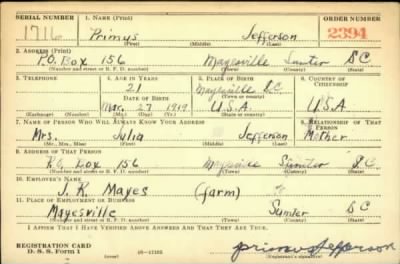 SERIAL NUMBER 1. NAME (Print) ORDER NUMBER
1716 Primus Jefferson 2394
(First) (Middle) (Last)
2. ADDRESS (Print)
P.O. Box 156 Mayesville Sumter S.C.
(Number and street or R. F. D. number) (Town) (County) (State)
3. TELEPHONE 4. AGE IN YEARS 5. PLACE OF BIRTH 6. COUNTRY OF CITIZENSHIP
21 Mayesville S.C.
DATE OF BIRTH (Town or county)
Mar. 27 1919 U.S.A. U.S.A
(Exchange) (Number) (Mo.) (Day) (Yr.) (State or country)
7. NAME OF PERSON WHO WILL ALWAYS KNOW YOUR ADDRESS 8. RELATIONSHIP OF THAT PERSON
Mrs. Julia Jefferson Mother
(Mr., Mrs., Miss) (First) (Middle) (Last)
9. ADDRESS OF THAT PERSON
Box 156 Mayesville Sumter S.C.
(Number and street or R. F. D. number) (Town) (County) (State)
10. EMPLOYER'S NAME
J. R. Mayes (farm)
11. PLACE OF EMPLOYMENT OR BUSINESS
Mayesville Sumter S.C.
(Number and street or R. F. D. number) (Town) (County) (State)
I AFFIRM THAT I HAVE VERIFIED ABOVE ANSWERS AND THAT THEY ARE TRUE.
REGISTRATION CARD
D. S. S. Form 1 16—17105 primus Jefferson
(Registrant's signature)